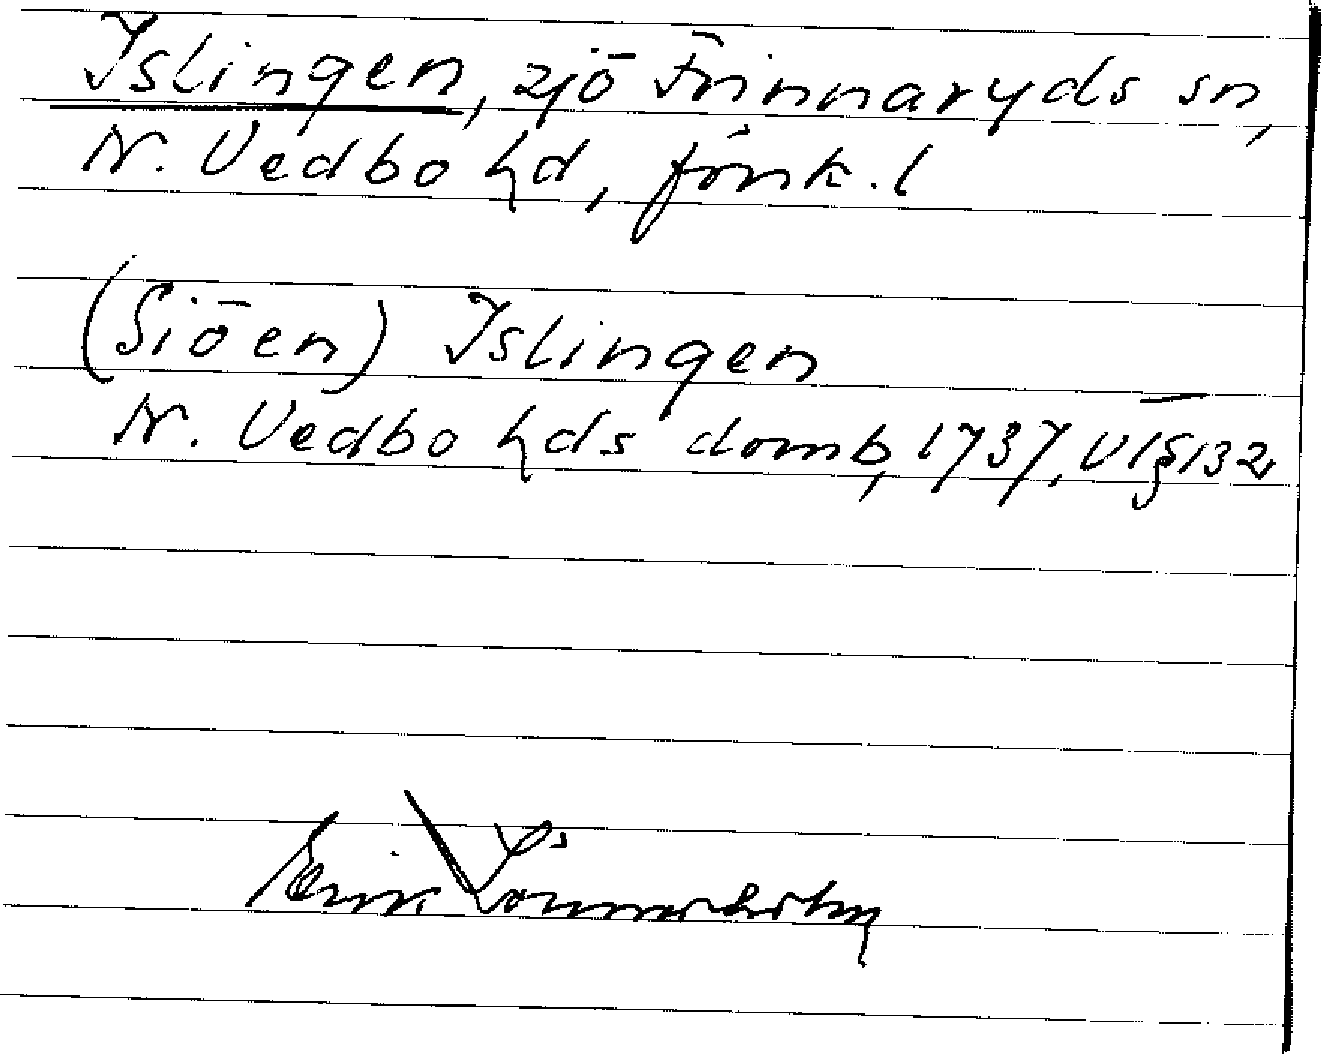 Islingen, sjö Frinnaryds sn,
N. Vedbo hd, Jönk. l
(Siöen) Islingen
N. Vedbo hds domb, 1737, V1§132
Erik